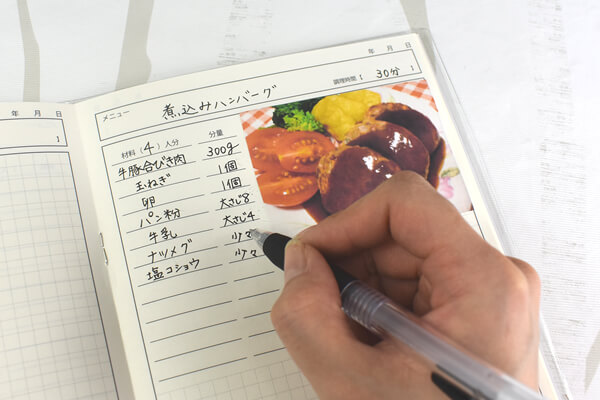 年 月 日
メニュー 煮込みハンバーグ
調理時間： 30分
材料（4）人分 分量
牛豚合びき肉 300g
玉ねぎ 1個
卵 1個
パン粉 大さじ8
牛乳 大さじ4
ナツメグ 少々
塩コショウ 少々
年 月 日